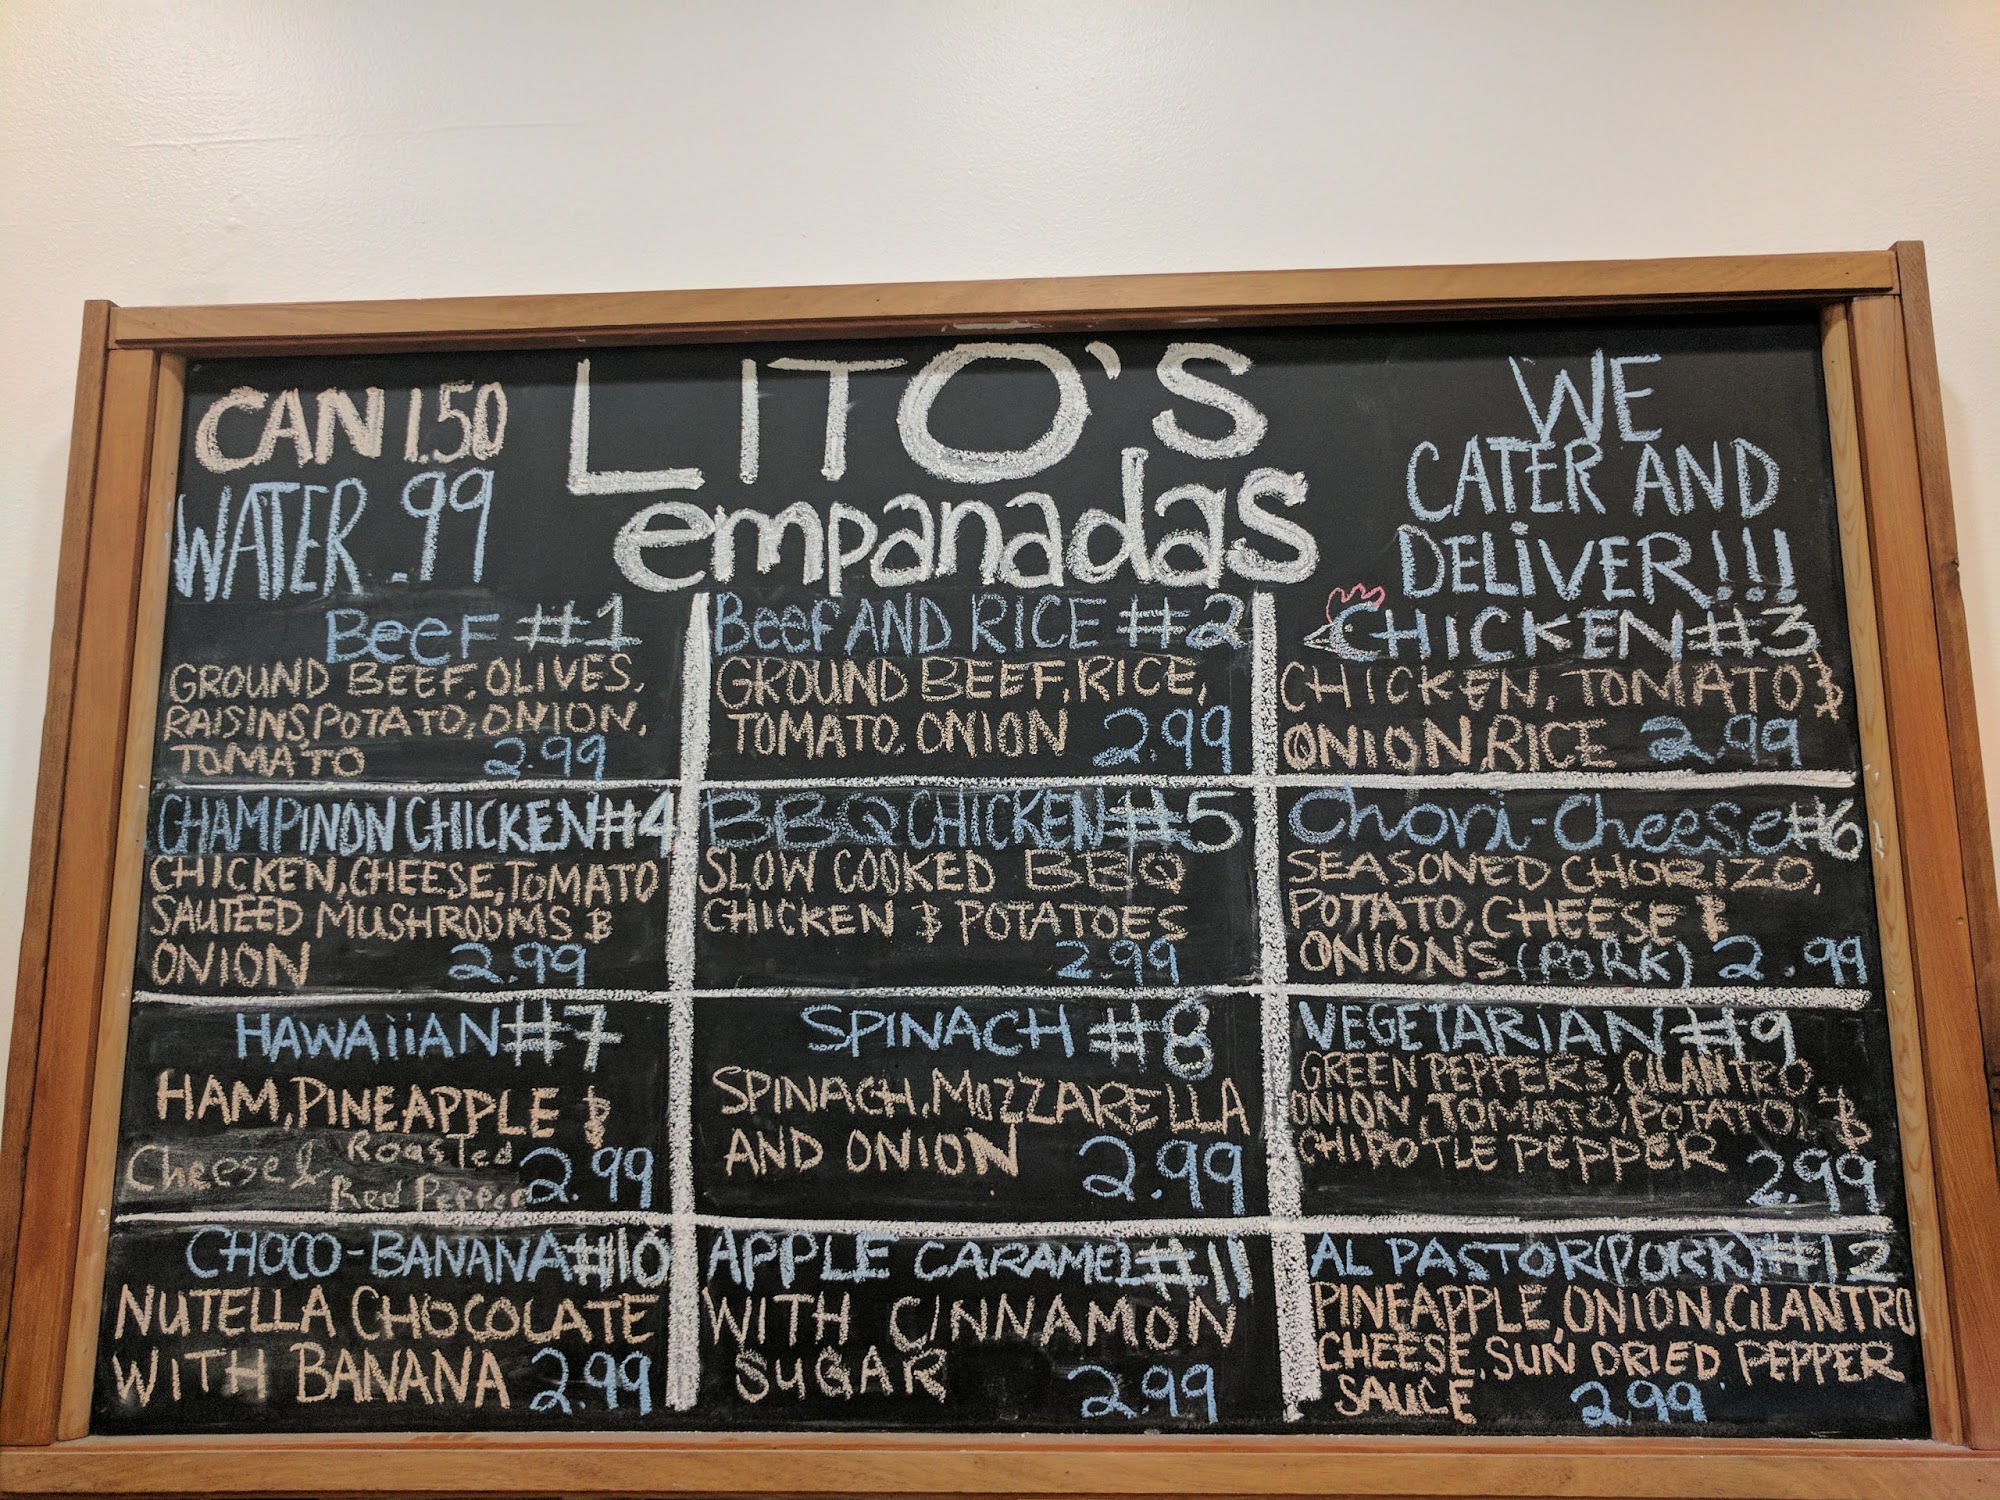 CAN 1.50
WATER .99
LITO'S
empanadas
WE
CATER AND
DELIVER!!!
BEEF #1
GROUND BEEF, OLIVES,
RAISINS, POTATO, ONION,
TOMATO 2.99
BEEF AND RICE #2
GROUND BEEF, RICE,
TOMATO, ONION 2.99
CHICKEN #3
CHICKEN, TOMATO &
ONION, RICE 2.99
CHAMPINON CHICKEN #4
CHICKEN, CHEESE, TOMATO
SAUTEED MUSHROOMS &
ONION 2.99
BBQ CHICKEN #5
SLOW COOKED BBQ
CHICKEN & POTATOES
2.99
Chori-Cheese #6
SEASONED CHORIZO,
POTATO, CHEESE &
ONIONS (PORK) 2.99
HAWAIIAN #7
HAM, PINEAPPLE &
Cheese & Roasted
Red Pepper 2.99
SPINACH #8
SPINACH, MOZZARELLA
AND ONION 2.99
VEGETARIAN #9
GREEN PEPPERS, CILANTRO,
ONION, TOMATO, POTATO, &
CHIPOTLE PEPPER
2.99
CHOCO-BANANA #10
NUTELLA CHOCOLATE
WITH BANANA 2.99
APPLE CARAMEL #11
WITH CINNAMON
SUGAR 2.99
AL PASTOR (PORK) #12
PINEAPPLE, ONION, CILANTRO
CHEESE, SUN DRIED PEPPER
SAUCE 2.99